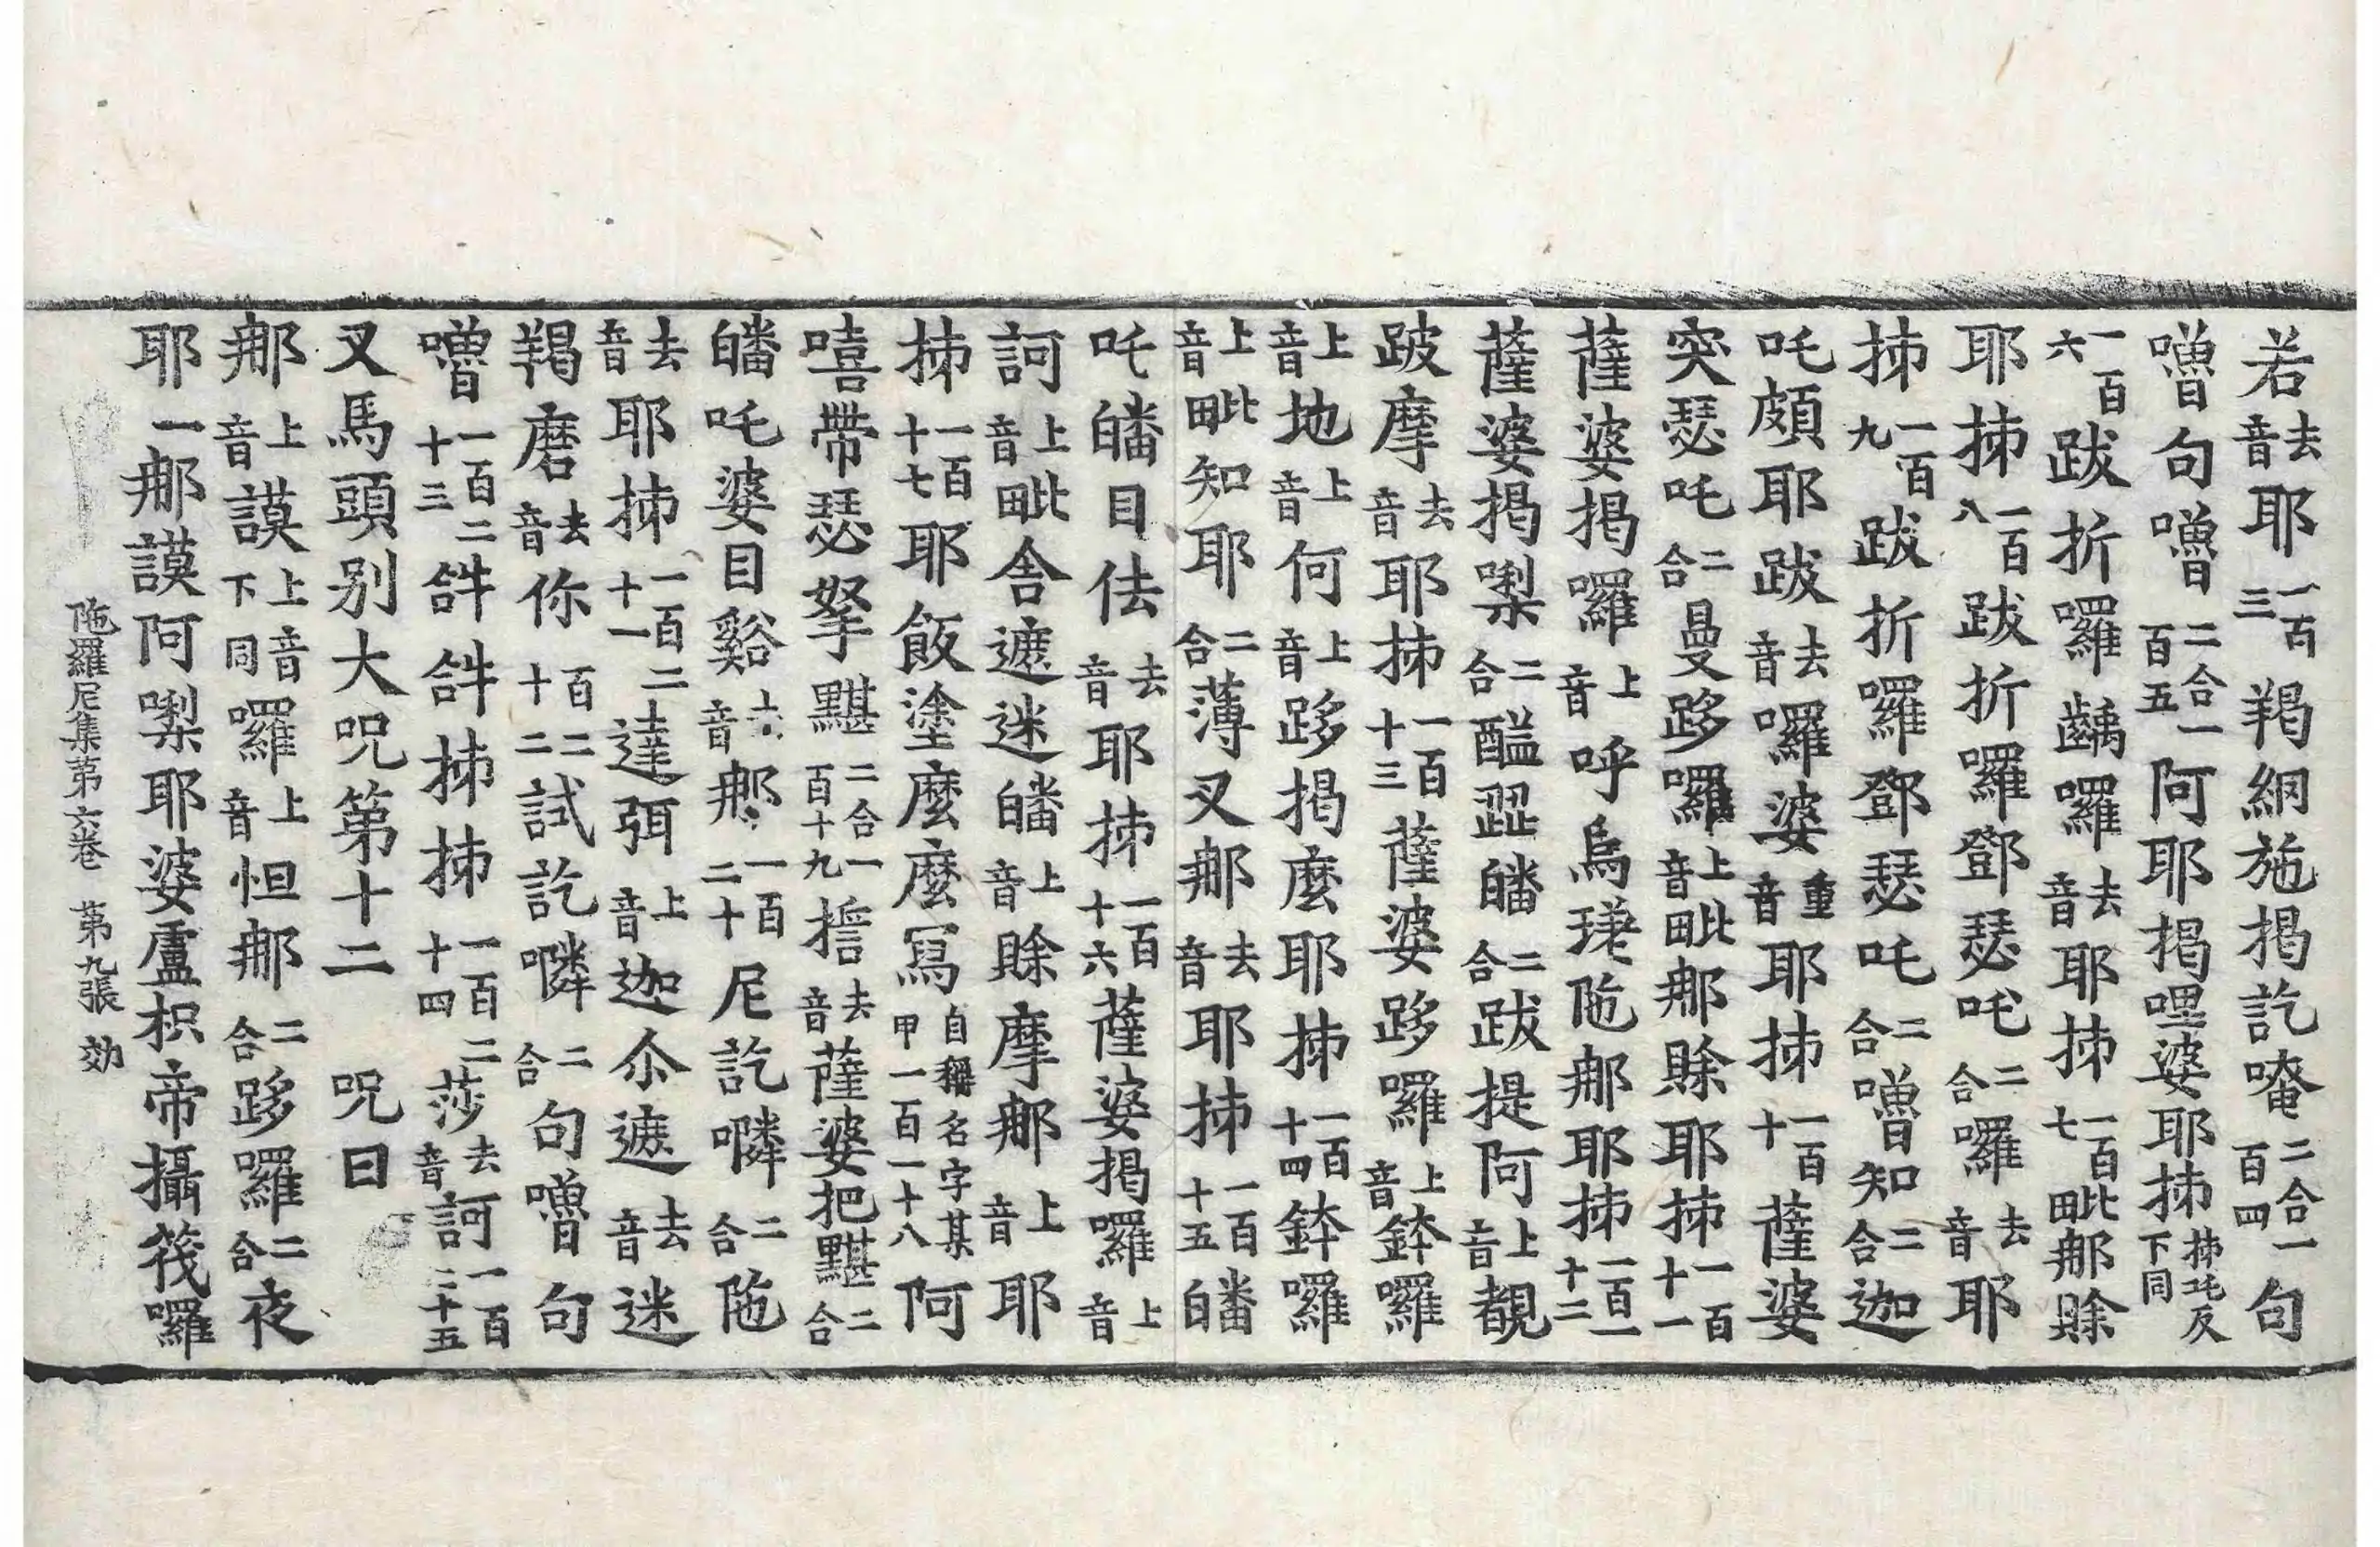 若去音耶一百三羯網施揭訖唵二合一百四句
嚕句嚕二合一百五阿耶揭哩婆耶抪抪乇反下同
一百六跋折囉齲囉去音耶抪一百七毗那賒
耶抪一百八跋折囉鄧瑟吒二合囉去音耶
抪一百九跋折囉鄧瑟吒二合嚕知二合迦
吒頗耶跋去音囉婆重音耶抪一百十薩婆
突瑟吒二合曼跢囉上音毗那賒耶抪一百十一
薩婆揭囉上音呼烏陁那耶抪一百一十二
薩婆揭㗚二合醯𨁝皤二合跋提阿上音靚
跛摩去音耶抪一百十三薩婆跢囉上音鉢囉
上音地上音何上音跢揭麼耶抪一百十四鉢囉
上音毗知耶二合薄叉那去音耶抪一百十五皤
吒皤目佉去音耶抪一百十六薩婆揭囉上音
訶上音毗舍遮迷皤上音賒摩那上音耶
抪一百十七耶飯塗麼麼寫自稱名字某甲一百一十八阿
嘻帶瑟拏黮二合一百十九㨖去音薩婆把黮二合
皤吒婆目谿去音那一百二十尼訖㗚二合陁
去音耶抪一百二十一達弭上音迦尒遮去音迷
羯磨去音你百二十二試訖㗚二合句嚕句
嚕一百二十三𤙖𤙖抪抪一百二十四莎去音訶一百二十五
又馬頭別大咒第十二 咒曰
那上音謨上音下同囉上音怛那二合跢囉二合夜
耶一那謨阿㗚耶婆盧枳帝攝筏囉
陁羅尼集第六卷 第九張 効